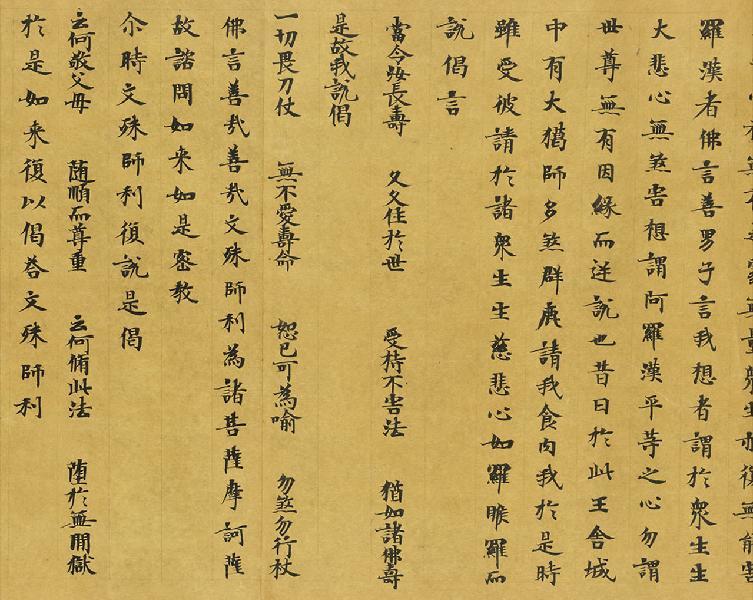 羅漢者佛言善男子言我想者謂於衆生生
大悲心無煞害想謂阿羅漢平等之心勿謂
世尊無有因緣而逆說也昔日於此王舍城
中有大獵師多煞群鹿請我食肉我於是時
雖受彼請於諸衆生生慈悲心如羅睺羅而
說偈言
當令汝長壽　久久住於世　受持不害法　猶如諸佛壽
是故我說偈
一切畏刀仗　無不愛壽命　恕己可為喻　勿煞勿行杖
佛言善哉善哉文殊師利為諸菩薩摩訶薩
故諮問如來如是密教
尒時文殊師利復說是偈
云何敬父母　随順而尊重　云何脩此法　墮於無間獄
於是如来復以偈荅文殊師利